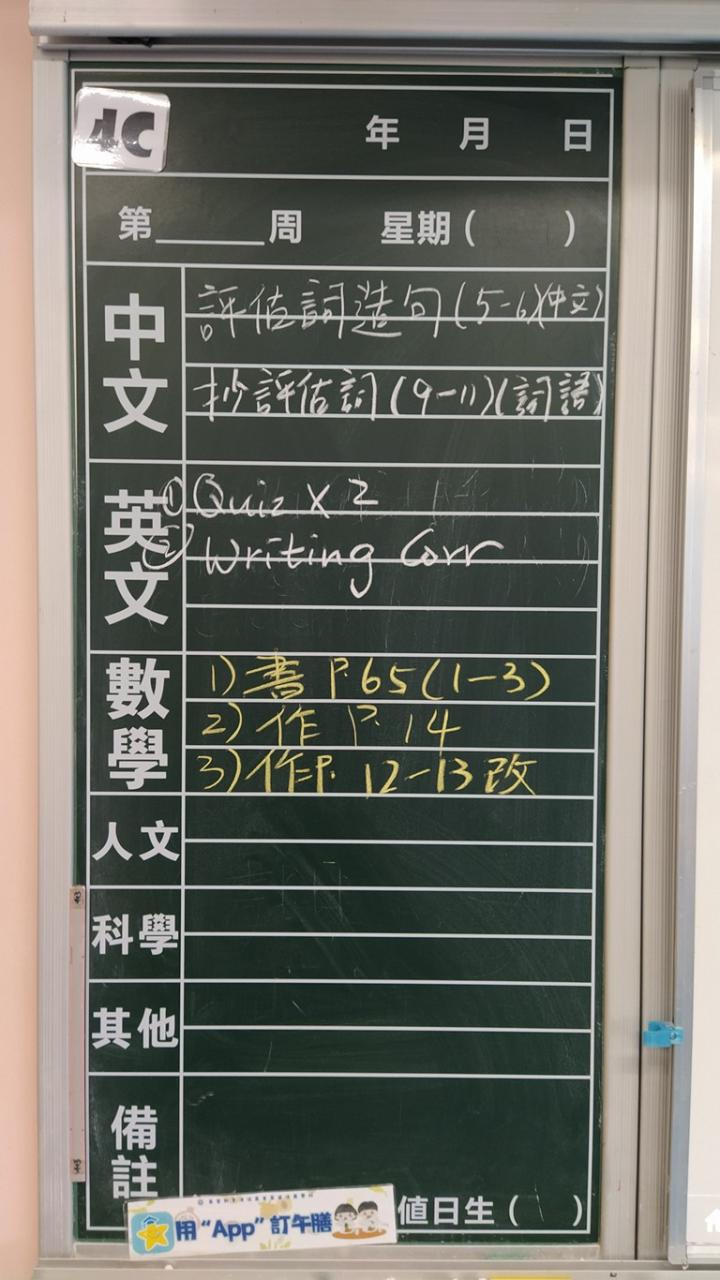 4C
年 月 日
第_____周 星期( )
中文
評估詞造句(5-6)(中文)
抄評估詞(9-11)(詞語)
英文
① Quiz x 2
② Writing Corr
數學
1) 書 P.65(1-3)
2) 作 P. 14
3) 作P. 12-13改
人文
科學
其他
備註
值日生( )
用“App”訂午膳